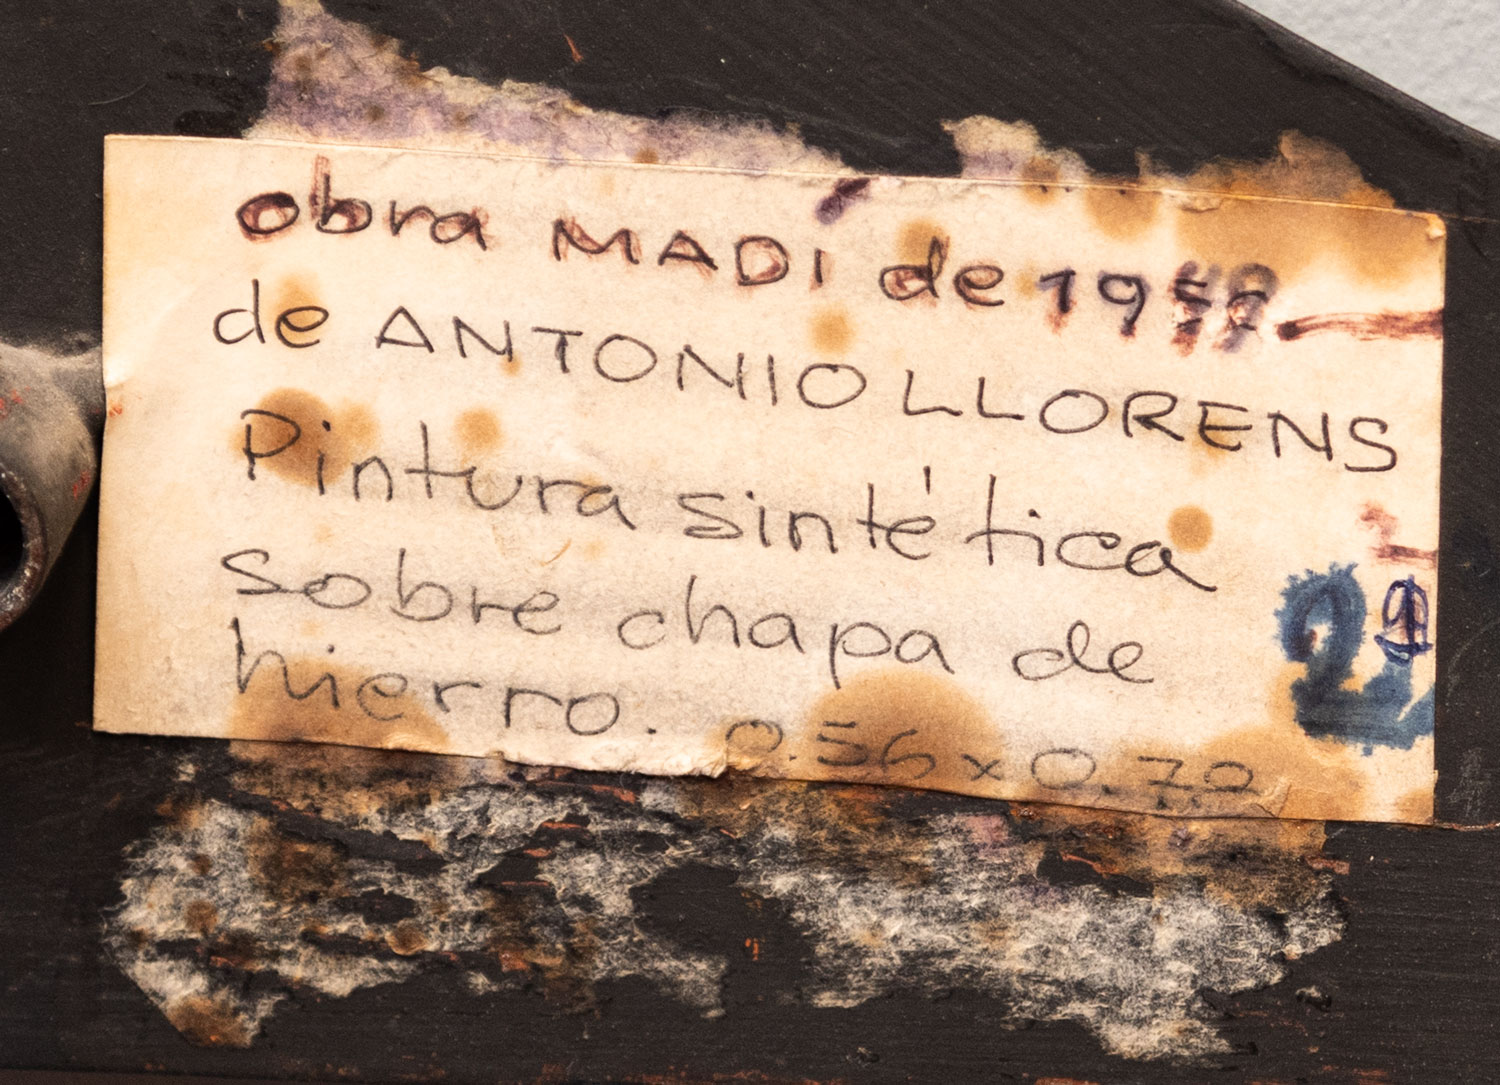 obra MADÍ de
de ANTONIO LLORENS
Pintura sintética
sobre chapa de
hierro. 0.56 x 0.72